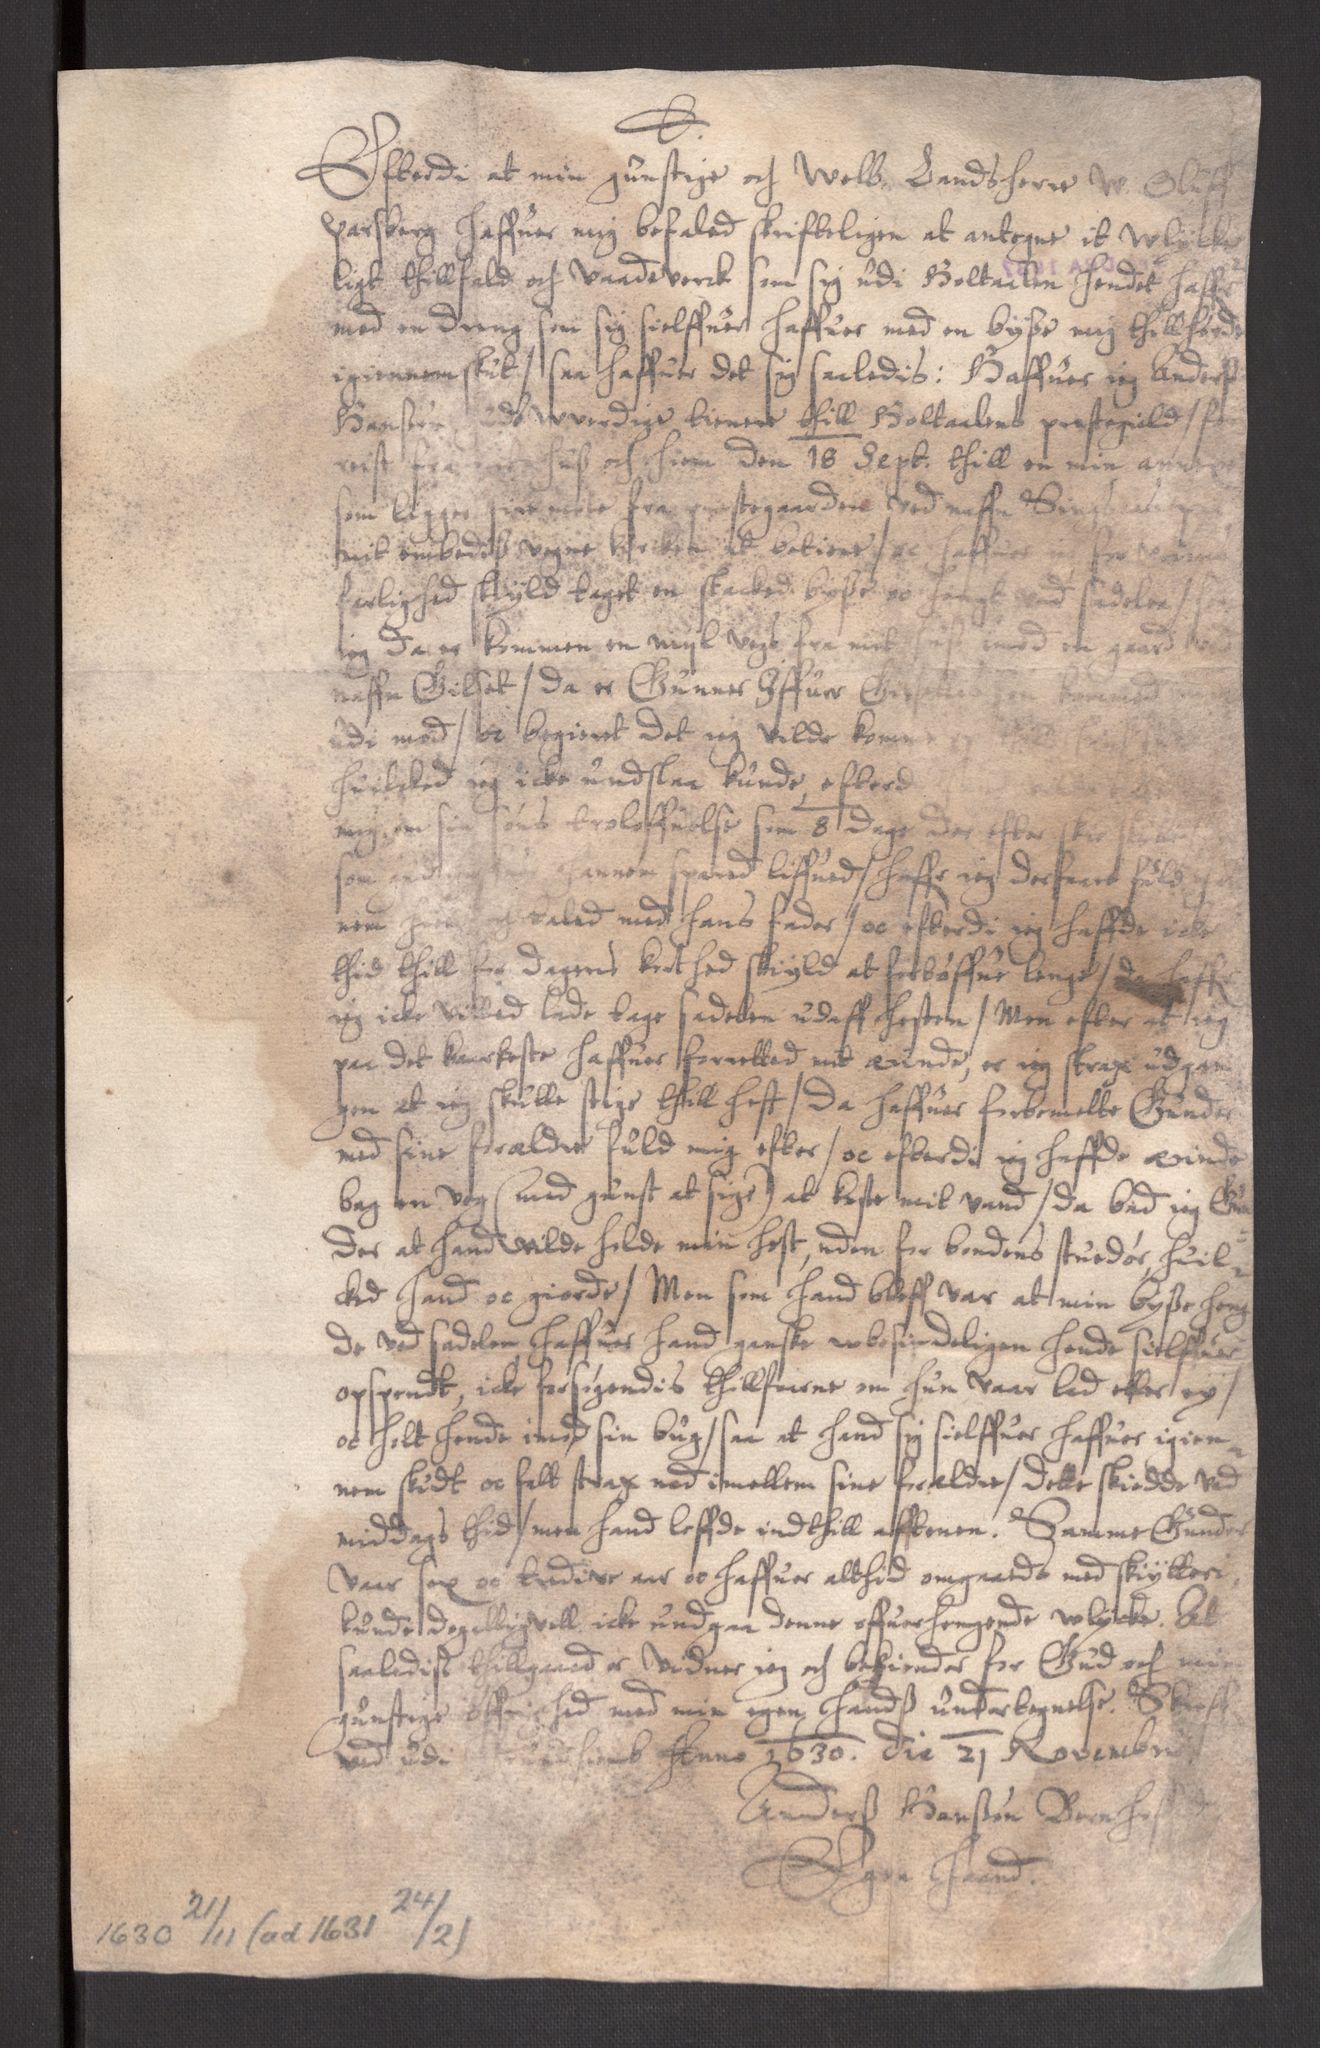 Efterdi at min gunstige och Welb. Landsherre W. Oluff
Parsberg haffuer mig befaled skrifteligen at antegne it wlycke
ligt thillfald och vaadeverck som sig udi Holtaalen hendet haffr
med en dreng som sig sielffuer haffuer med en bysse mig thillhørde
igiennemskut / saa haffuer det sig saaledis: Haffuer ieg Anderss
Hanssøn wverdige tienere thill Holtaalens prestegield /
reist fra huss och hiem den 18 Sept. thill en min annexe
som ligger mile fra prestegaarden ved naffn
mit embediss vegne kircken at betiene / oc haffuer ieg for
farlighed skyld taget en stacked bysse oc hengt ved sadelen /
ieg da er kommen en myl vegs fra mit huss imod en gaard
naffn Gilset / da er Gunner Iffuer kommed
udi mod / oc begieret det ieg vilde komme
huilcked ieg icke undslaa kunde, efterd
mig om sin søns troloffuelse som 8 dage der efter skie
som hannem spared liffued / haffr ieg derfaare fuld
nem taled med hans fader / oc efterdi ieg haffde icke
thid thill for dagens korthed skyld at forbøffue lenge / da haffr
ieg icke villed lade tage sadelen udaff hesten / Men efter at ieg
paa det kaarteste haffuer forretted mit ærinde, er ieg strax udgan
gen at ieg skulle stige thill hest / da haffuer forbemelte Gunder
med sine forældre fuld mig efter / oc efterdi ieg haffde ærinde
bag en veg (med gunst at sige) at kaste mit vand / da bad ieg Gun
der at hand wilde holde min hest, uden for bondens stuedør, huil
cked hand oc giorde / Men som hand bleff var at min bysse heng
de ved sadelen, haffuer hand ganske wbesindeligen hende sielffuer
opspendt, icke forsøgendis thillfaarne om hun vaar lad eller ey /
oc holt hende imod sin bug / saa at hand sig sielffuer haffuer igien
nem skudt oc falt strax ned imellem sine forældre / dette skiedde ved
middags thid / men hand leffde indthill afftenen. Samme Gunder
vaar sex oc tredive aar oc haffuer althid omgaaeds med skytteri,
kunde dogalligevell icke undgaa denne offuerhengende wlycke. At
saaledis thillgaaed er vidner ieg och bekiender for Gud och min
gunstige øffrighed med min egen haands undertegnelse. Skreff
ved udi Anno 1630. die 21 Novembris
Anderss Hanssøn
Egen Haand.
1630 21/11 (ad 1631 24/2)